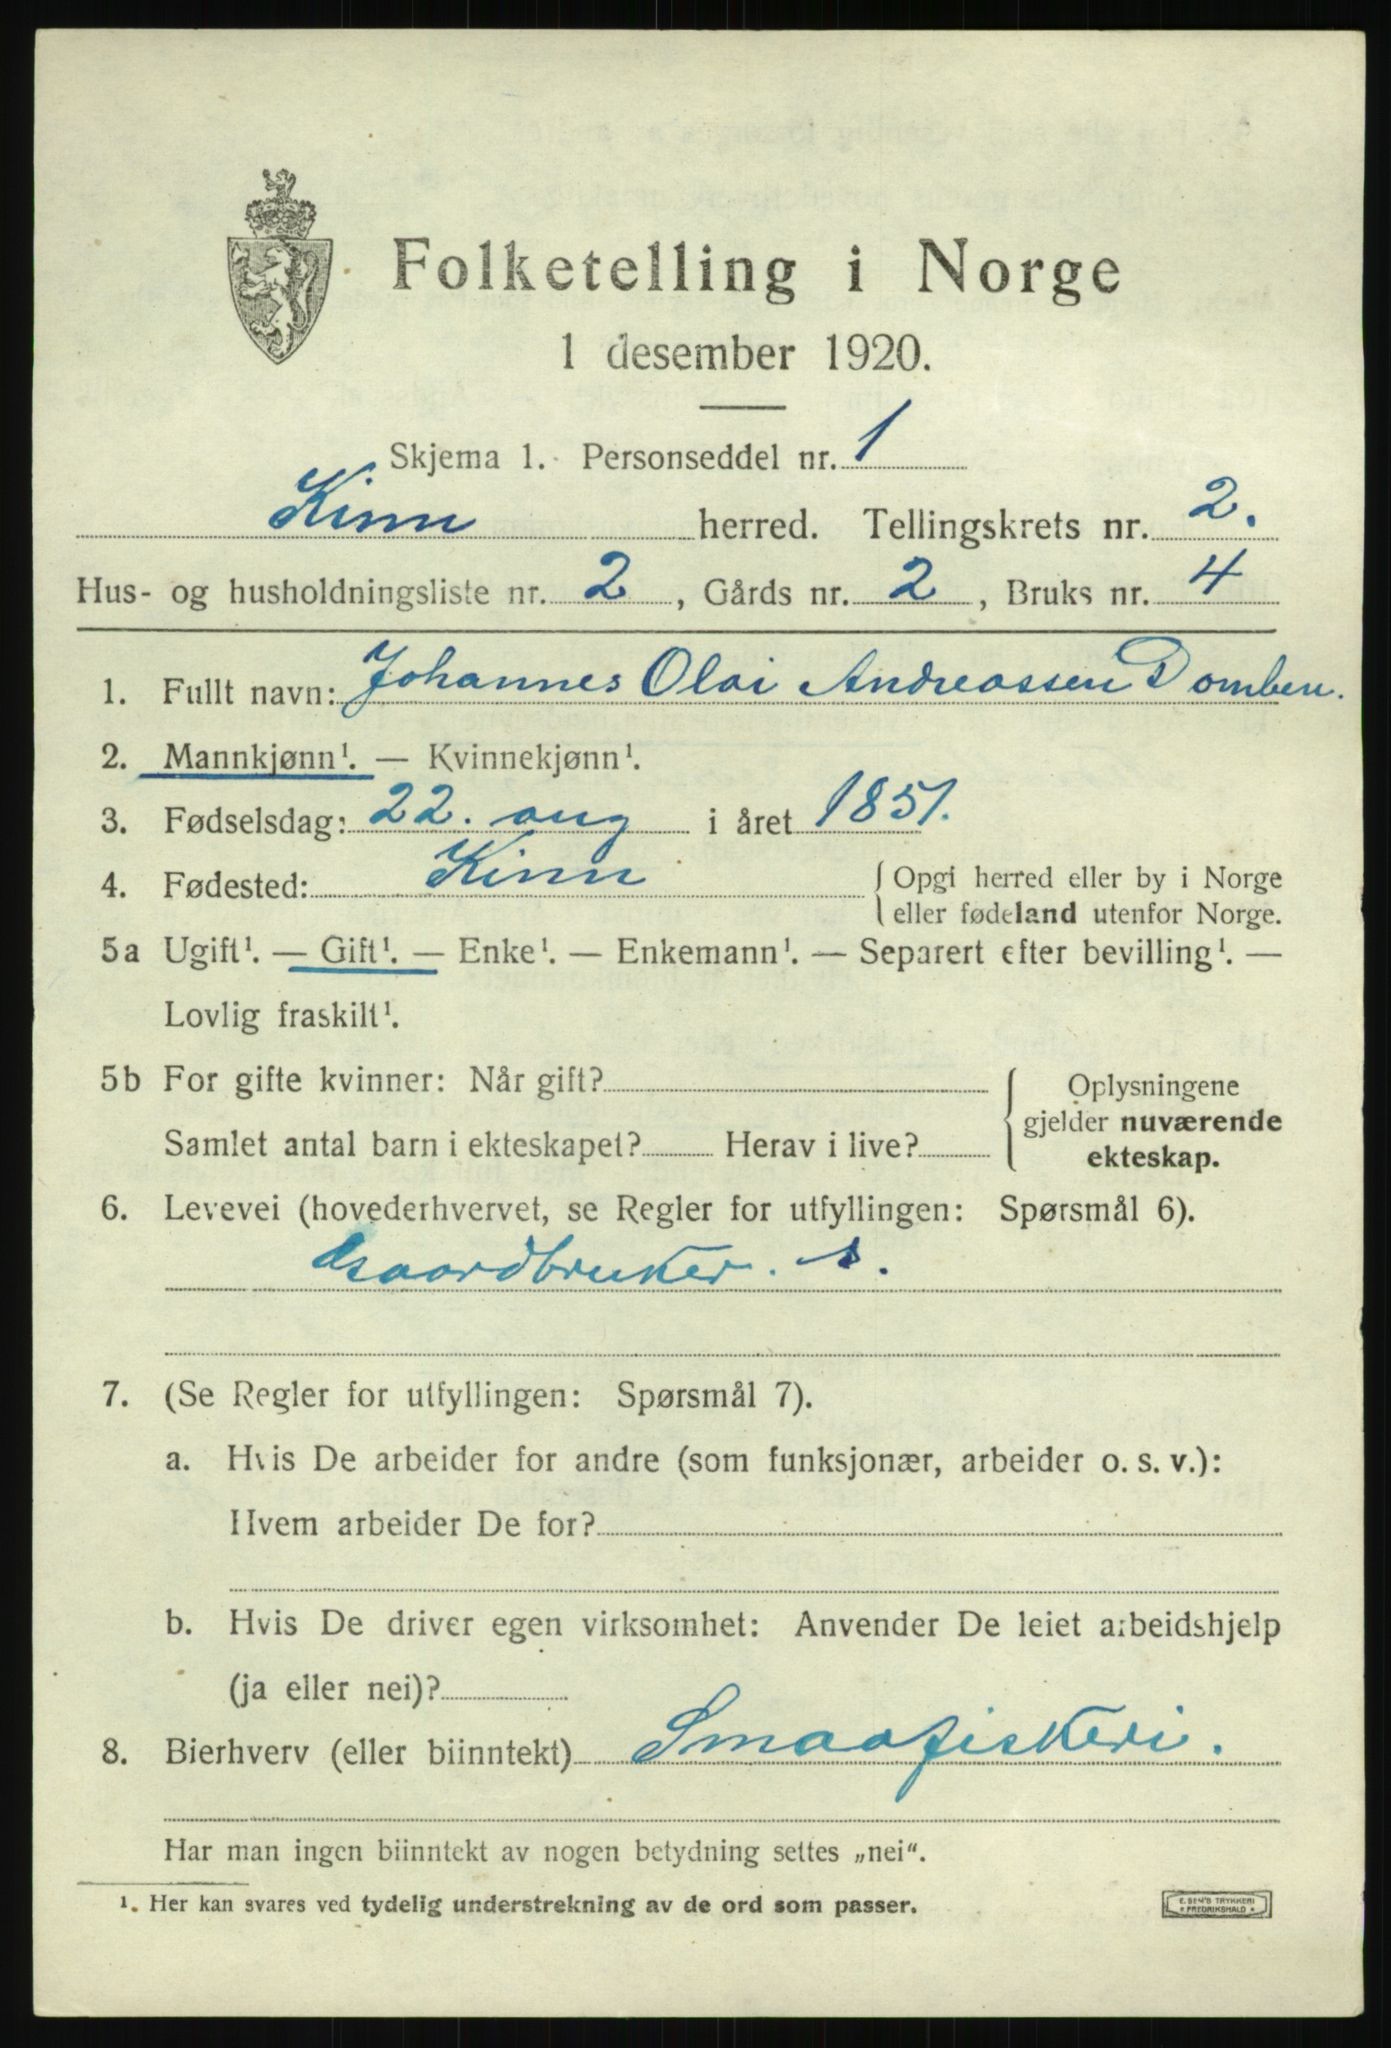 Folketelling i Norge
1 desember 1920.
Skjema 1. Personseddel nr. 1
Kinn herred. Tellingskrets nr. 2.
Hus- og husholdningsliste nr. 2, Gårds nr. 2, Bruks nr. 4
1. Fullt navn: Johannes Olai Andreassen Domben.
2. Mannkjønn¹. — Kvinnekjønn¹.
3. Fødselsdag: 22. aug i året 1851.
4. Fødested: Kinn { Opgi herred eller by i Norge
eller fødeland utenfor Norge.
5a Ugift¹. — Gift¹. — Enke¹. — Enkemann¹. — Separert efter bevilling¹. —
Lovlig fraskilt¹.
5b For gifte kvinner: Når gift? { Oplysningene
gjelder nuværende
Samlet antal barn i ekteskapet? Herav i live? ekteskap.
6. Levevei (hovederhvervet, se Regler for utfyllingen: Spørsmål 6).
Gaardbruker. s.
7. (Se Regler for utfyllingen: Spørsmål 7).
a. Hvis De arbeider for andre (som funksjonær, arbeider o. s. v.):
Hvem arbeider De for?
b. Hvis De driver egen virksomhet: Anvender De leiet arbeidshjelp
(ja eller nei)?
8. Bierhverv (eller biinntekt) Smaafiskeri.
Har man ingen biinntekt av nogen betydning settes „nei“.
¹. Her kan svares ved tydelig understrekning av de ord som passer.
E. SEM'S TRYKKERI
* FREDRIKSHALD *